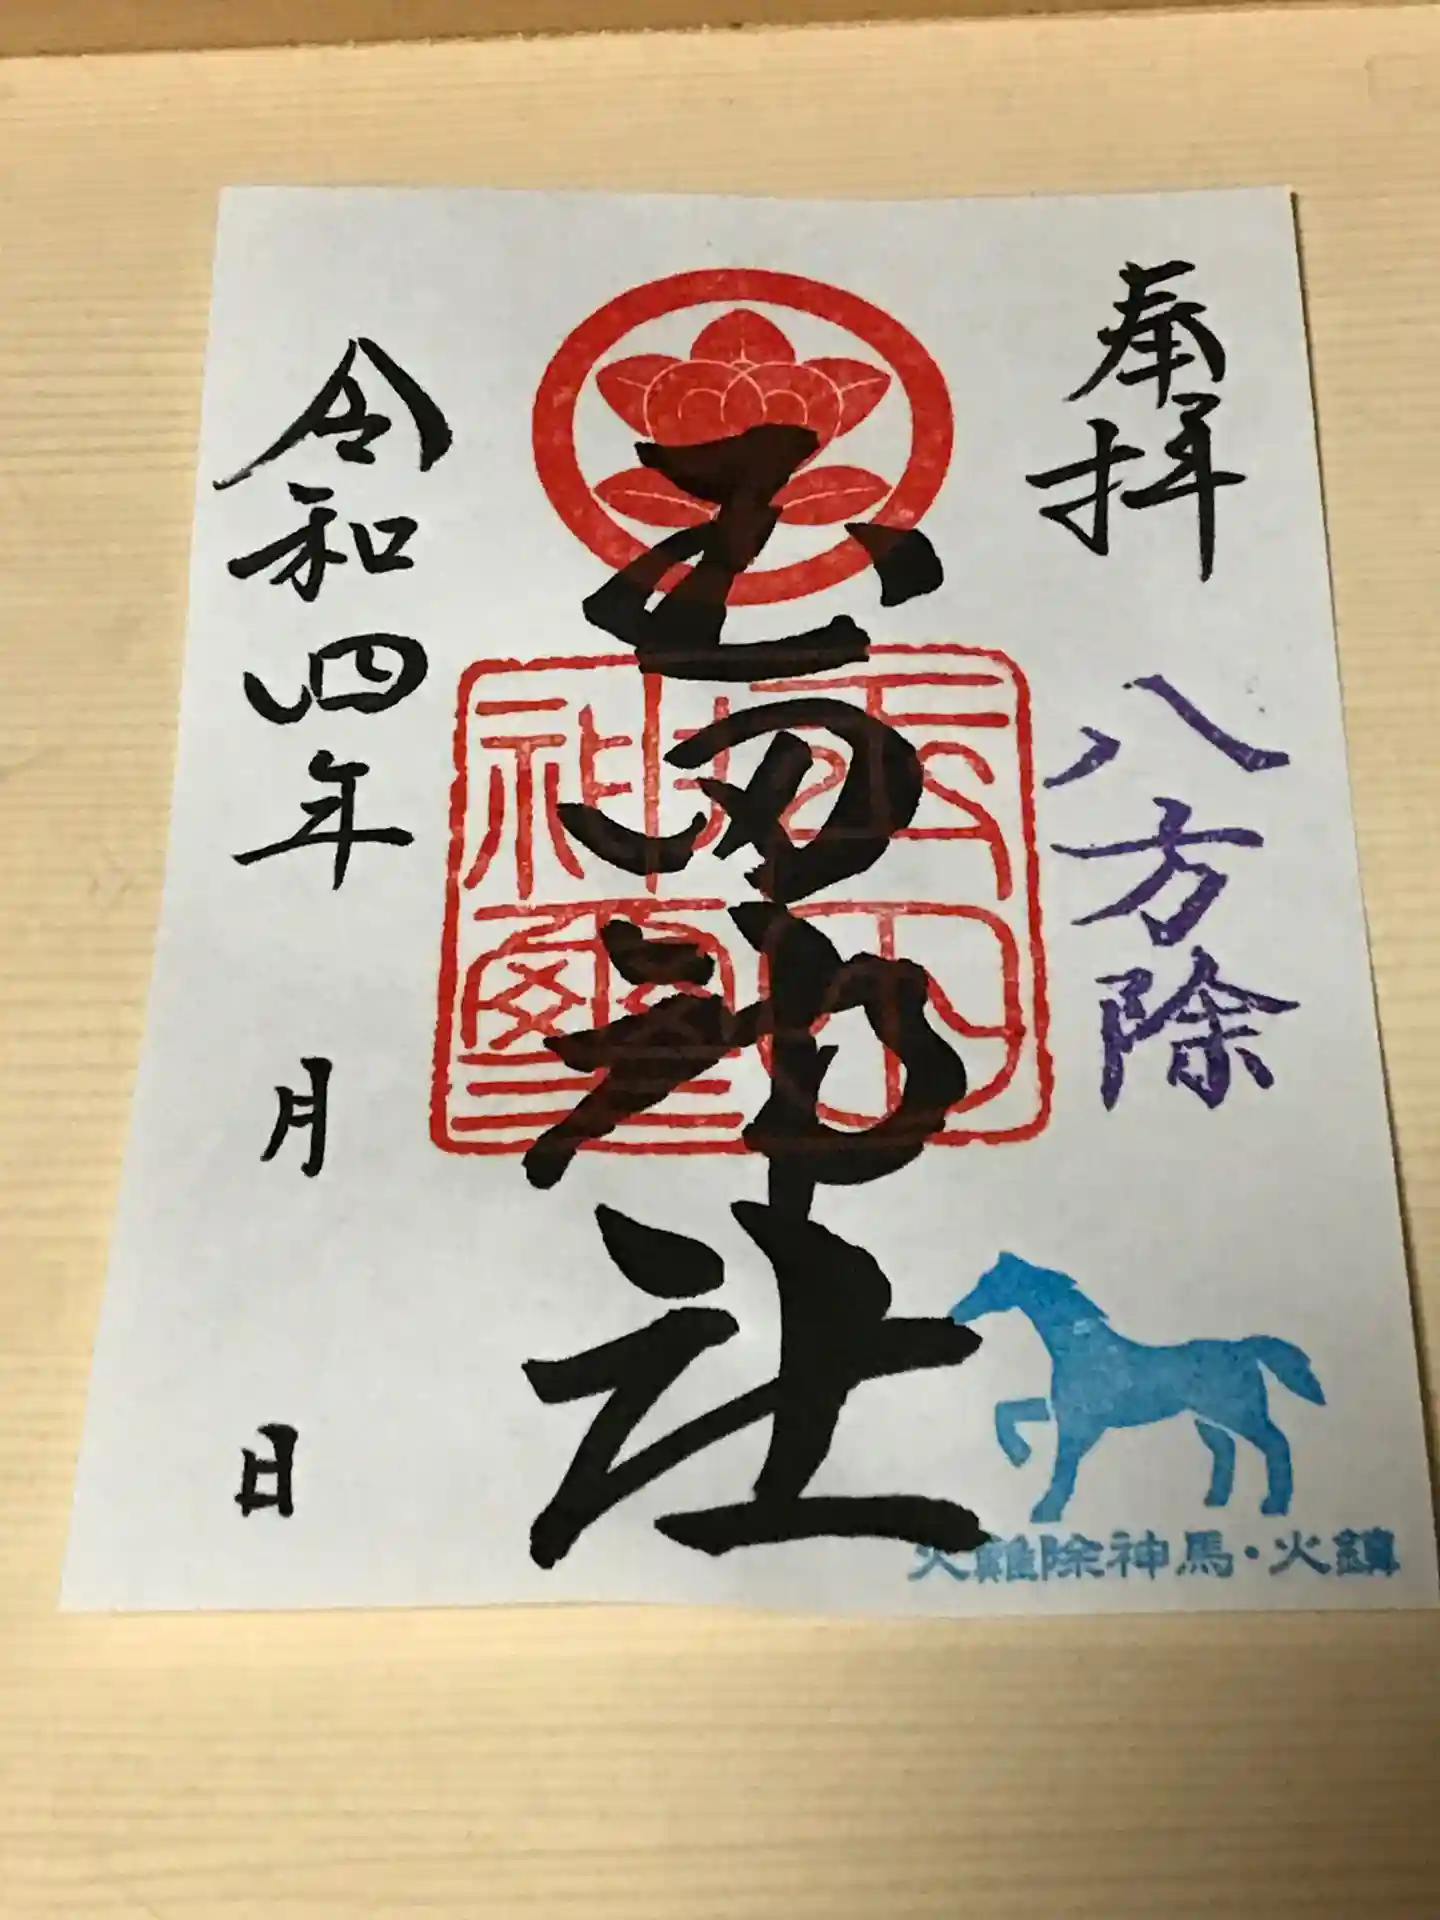 奉拝
八方除
玉田神社
玉田神璽
令和四年 月 日
火難除神馬・火鎮